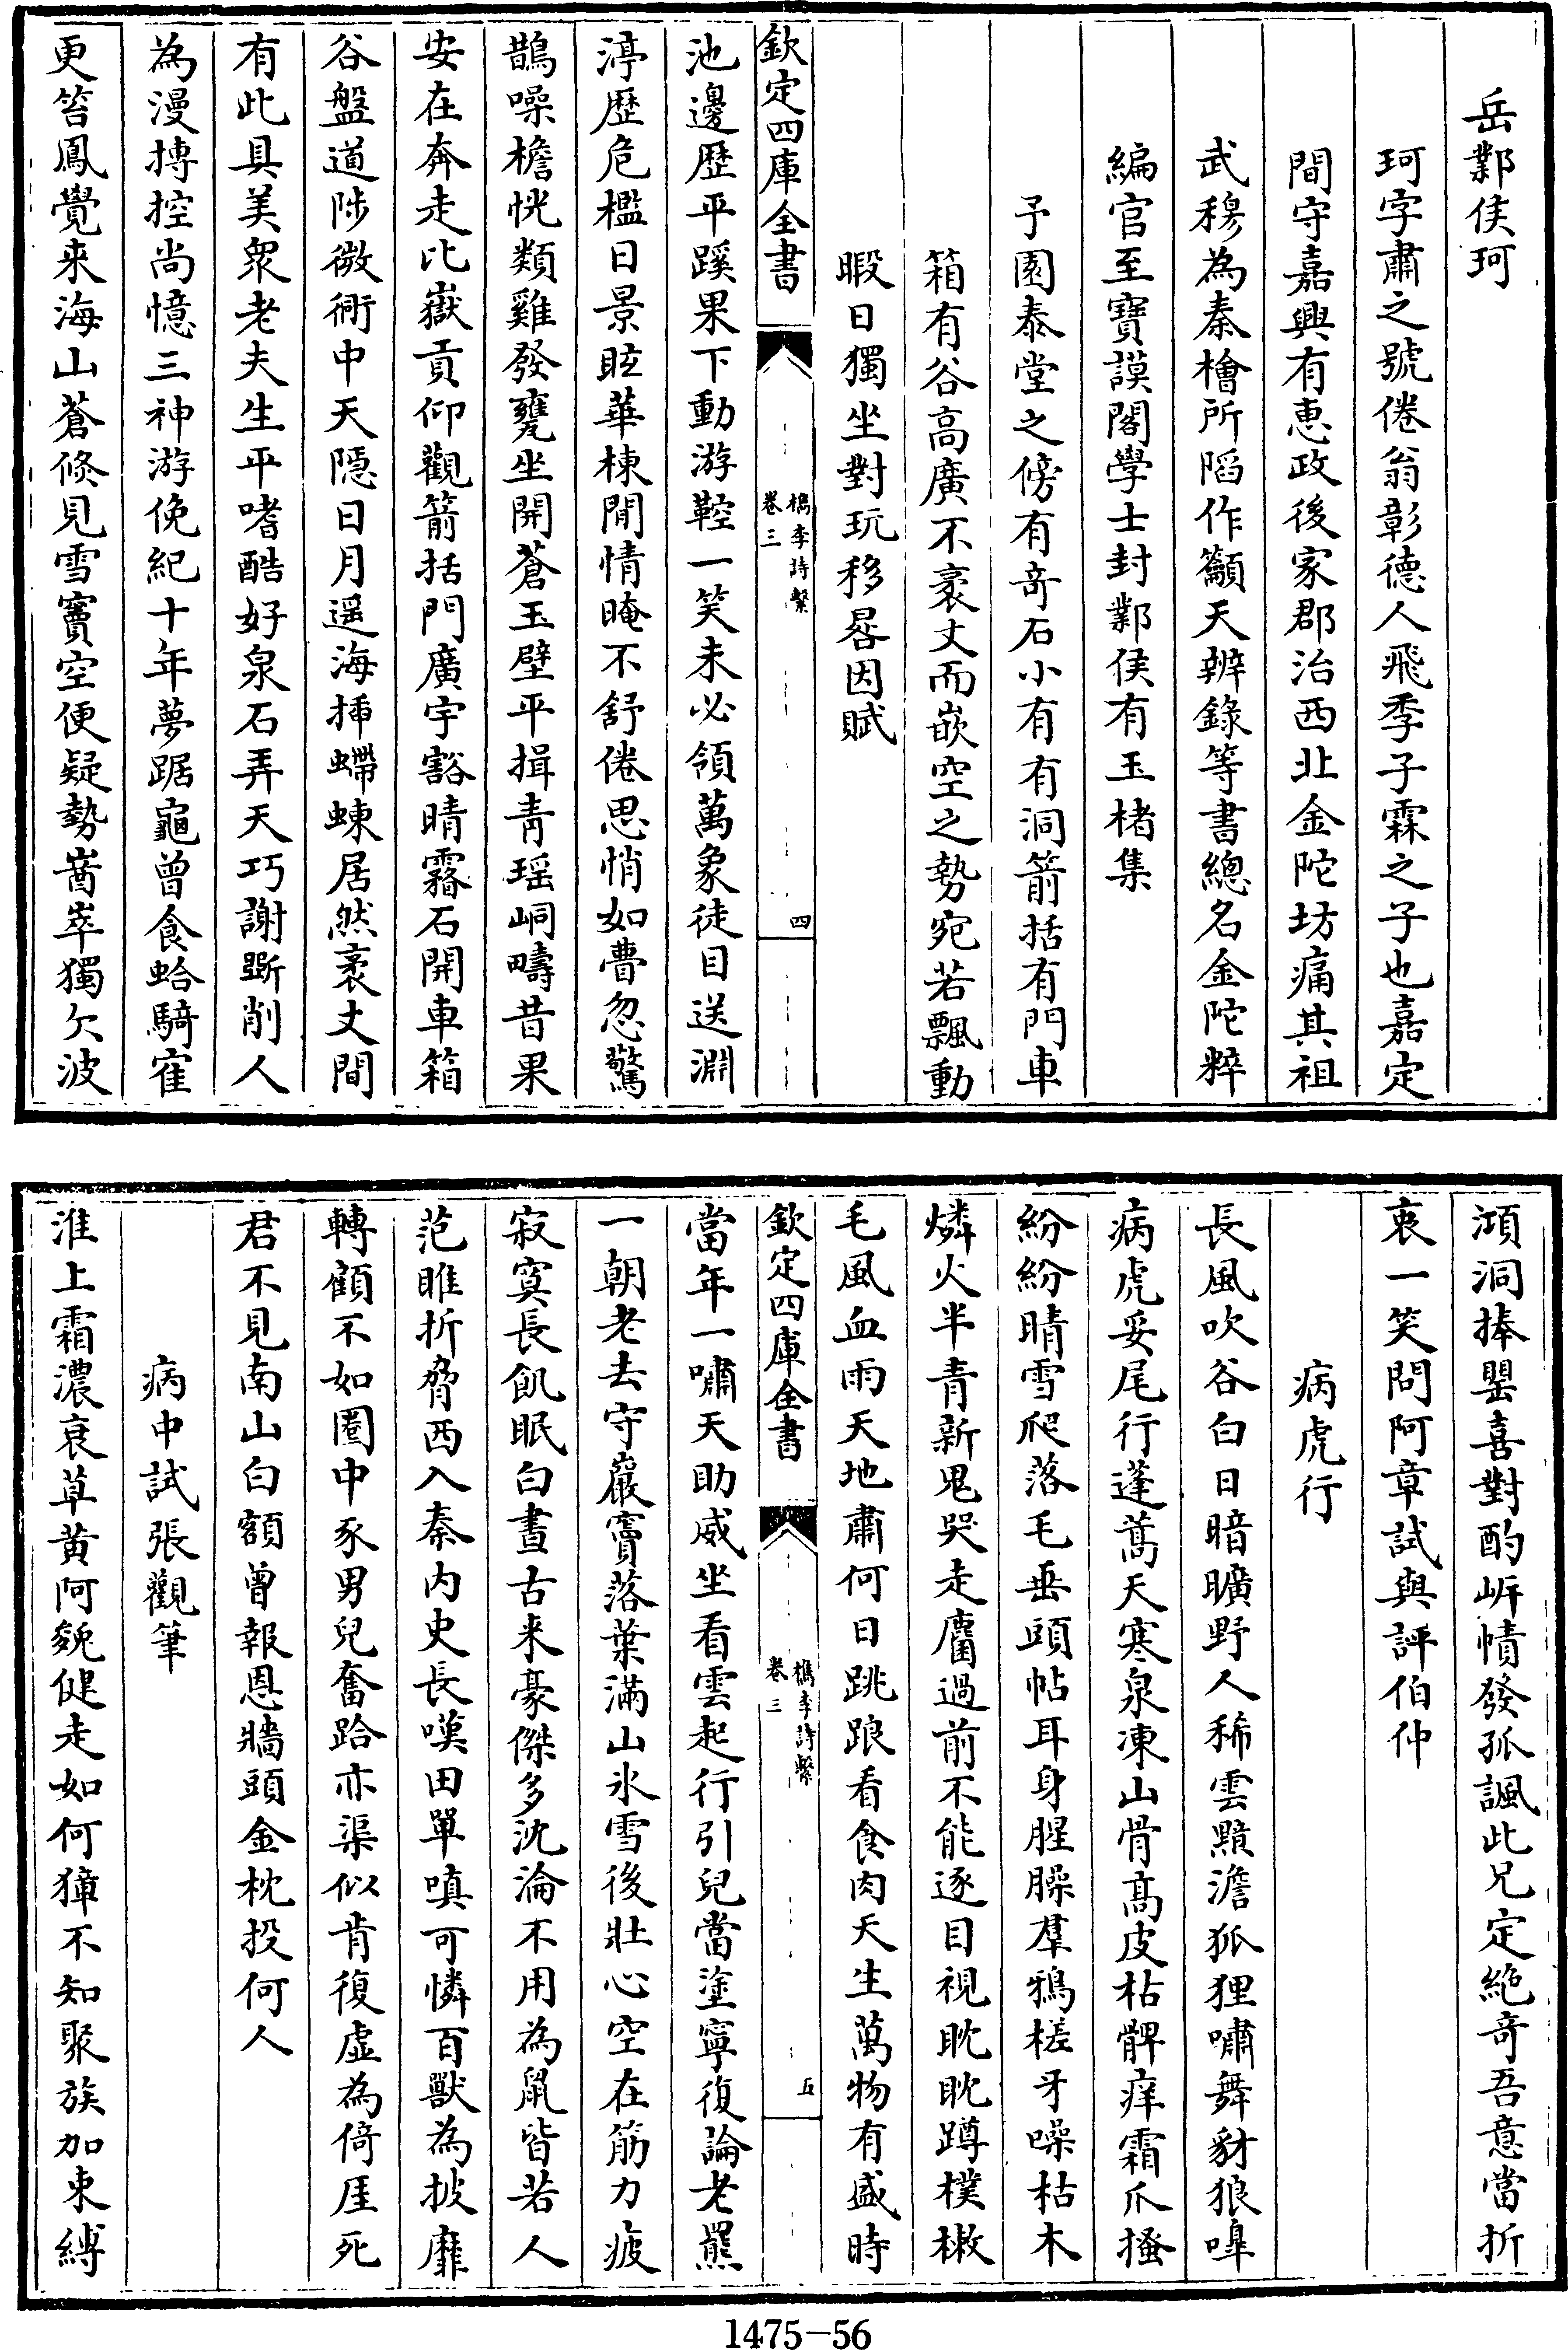 岳鄴侯珂
珂字肅之號倦翁彰德人飛季子霖之子也嘉定
間守嘉興有惠政後家郡治西北金陀坊痛其祖
武穆為秦檜所䧟作籲天辨錄等書總名金陀粹
編官至寶謨閣學士封鄴侯有玉楮集
予園泰堂之傍有奇石小有有洞箭括有門車
箱有谷高廣不袤丈而嵌空之勢宛若飄動
暇日獨坐對玩移晷因賦
欽定四庫全書
檇李詩繫
卷三
四
池邊歴平蹊果下動游鞚一笑未必領萬象徒目送淵
渟歴危檻日景眩華棟閒情晻不舒倦思悄如懵忽驚
鵲噪檐恍類雞發甕坐開蒼玉壁平揖青瑶峒疇昔果
安在奔走比嶽貢仰觀箭括門廣宇豁晴霧石開車箱
谷盤道陟微衕中天隱日月遥海挿螮蝀居然袤丈間
有此具美衆老夫生平嗜酷好泉石弄天巧謝斲削人
為漫摶控尚憶三神游俛紀十年夢踞龜曾食蛤騎寉
更笞鳳覺来海山蒼倏見雪竇空便疑勢崷崒獨欠波
澒洞捧罌喜對酌岸幘發孤諷此兄定絶竒吾意當折
衷一笑問阿章試與評伯仲
病虎行
長風吹谷白日暗曠野人稀雲黯澹狐狸嘯舞豺狼嘷
病虎妥尾行蓬蒿天寒泉凍山骨髙皮枯髀痒霜爪搔
紛紛晴雪爬落毛垂頭帖耳身腥臊羣鴉槎牙噪枯木
燐火半青新鬼哭走麕過前不能逐目視眈眈蹲樸樕
毛風血雨天地肅何日跳踉看食肉天生萬物有盛時
欽定四庫全書
檇李詩繫
卷三
五
當年一嘯天助威坐看雲起行引兒當塗寧復論老羆
一朝老去守巖竇落葉滿山氷雪後壯心空在筋力疲
寂寞長飢眠白晝古来豪傑多沈淪不用為鼠皆若人
范睢折脅西入秦内史長嘆田單嗔可憐百獸為披靡
轉顧不如圈中豕男兒奮跲亦渠似肯復虚為倚厓死
君不見南山白額曾報恩牆頭金枕投何人
病中試張觀筆
淮上霜濃衰草黄阿㕙健走如何獐不知聚族加束縛
1475-56